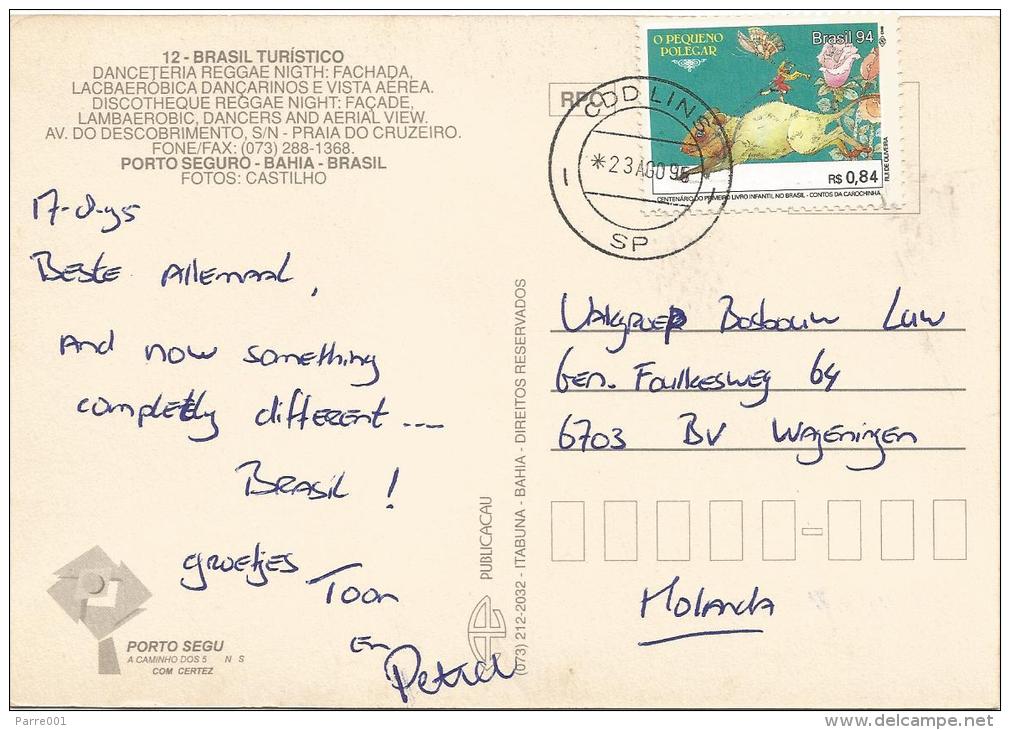 12 - BRASIL TURÍSTICO
DANCETERIA REGGAE NIGTH: FACHADA,
LACBAERÓBICA DANÇARINOS E VISTA AÉREA.
DISCOTHEQUE REGGAE NIGHT: FAÇADE,
LAMBAEROBIC, DANCERS AND AERIAL VIEW.
AV. DO DESCOBRIMENTO, S/N - PRAIA DO CRUZEIRO.
FONE/FAX: (073) 288-1368.
PORTO SEGURO - BAHIA - BRASIL
FOTOS: CASTILHO
Beste Allemaal,
And now something
completely different ...
Brasil !
groetjes
Toon
en
PORTO SEGU
A CAMINHO DOS 5 N S
COM CERTEZ
PUBLICACAU
(073) 212-2032 - ITABUNA - BAHIA - DIREITOS RESERVADOS
RPC
CDD LINS
*23 AGO 95
SP
O PEQUENO
POLEGAR
Brasil 94
R$ 0,84
RUI DE OLIVEIRA
CENTENÁRIO DO PRIMEIRO LIVRO INFANTIL NO BRASIL - CONTOS DA CAROCHINHA
Vakgroep Bosbouw Luw
Gen. Foulkesweg 64
6703 BV Wageningen
Holanda
Parre001
www.delcampe.net